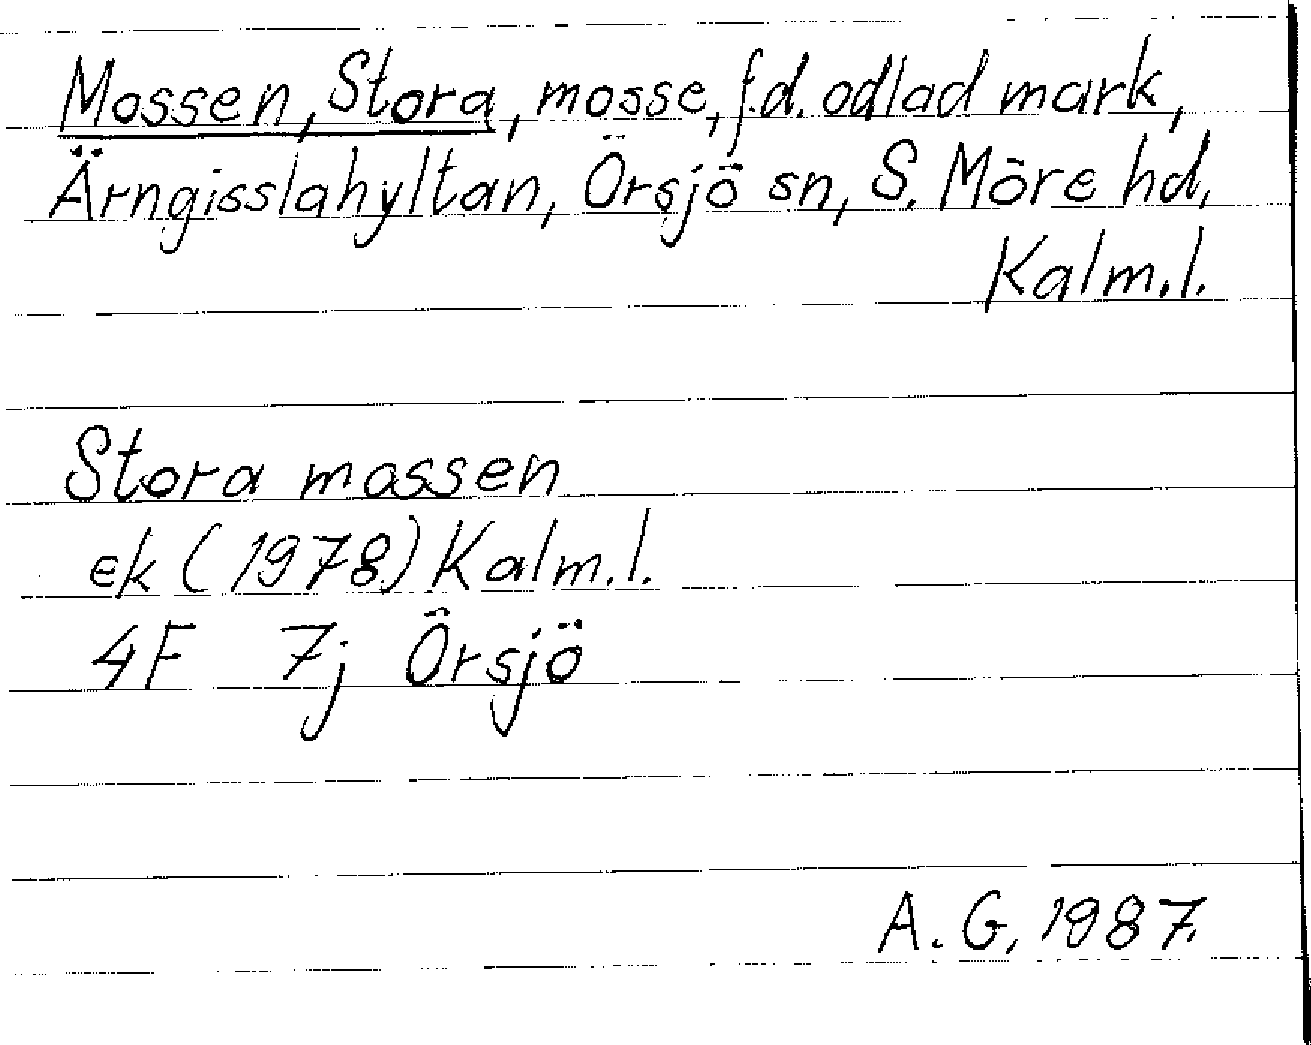 Mossen, Stora, mosse, f.d. odlad mark,
Ärngisslahyltan, Örsjö sn, S. Möre hd,
Kalm.l.
Stora mossen
ek (1978) Kalm.l.
4F 7j Örsjö
A.G. 1987.